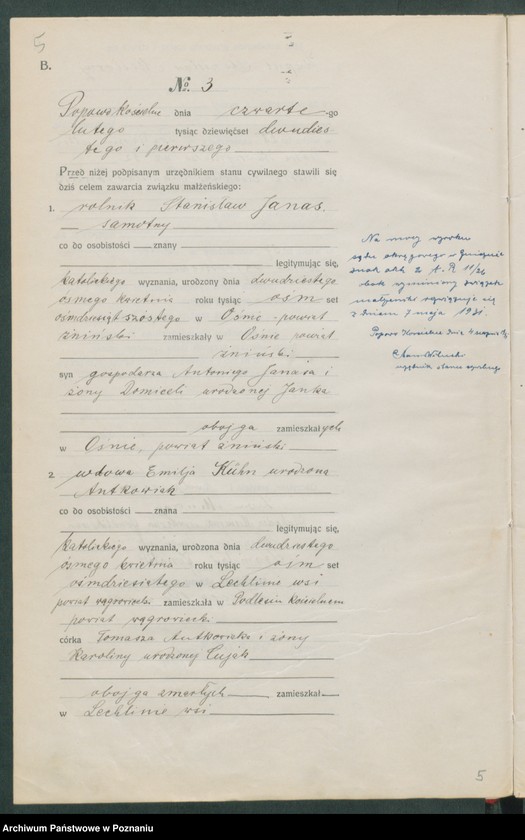 5
B.
No. 3
Popowo kościelne dnia czwarte-go
lutego tysiąc dziewięćset dwudzies
tego i pierwszego
Przed niżej podpisanym urzędnikiem stanu cywilnego stawili się
dziś celem zawarcia związku małżeńskiego:
1. rolnik Stanisław Janas.
samotny
co do osobistości znany
legitymując się,
katolickiego wyznania, urodzony dnia dwudziestego
ósmego kwietnia roku tysiąc ośm set
ośmdziesiąt szóstego w Ośnie powiat
żniński zamieszkały w Ośnie powiat
żniński
syn gospodarza Antoniego Janasa i
żony Domiceli urodzonej Janka
obojga zamieszkałych
w Ośnie, powiat żniński
2. wdowa Emilja Kühn urodzona
Antkowiak
co do osobistości znana
legitymując się,
katolickiego wyznania, urodzona dnia dwudziestego
ósmego kwietnia roku tysiąc ośm set
ośmdziesiątego w Lechlinie wsi
powiat wągrowiecki zamieszkała w Podlesiu kościelnem
powiat wągrowiecki
córka Tomasza Antkowiaka i żony
Karoliny urodzonej
obojga zmarłych zamieszkał
w Lechlinie wsi
Na mocy wyroku
sądu okręgowego w Gnieźnie
znak akt 2. R. 11/26
związek
małżeński rozwiązuje się
z dniem 7 maja 1931.
Popowo Kościelne dnia 4
urzędnik stanu cywilnego
5
Archiwum Państwowe w Poznaniu